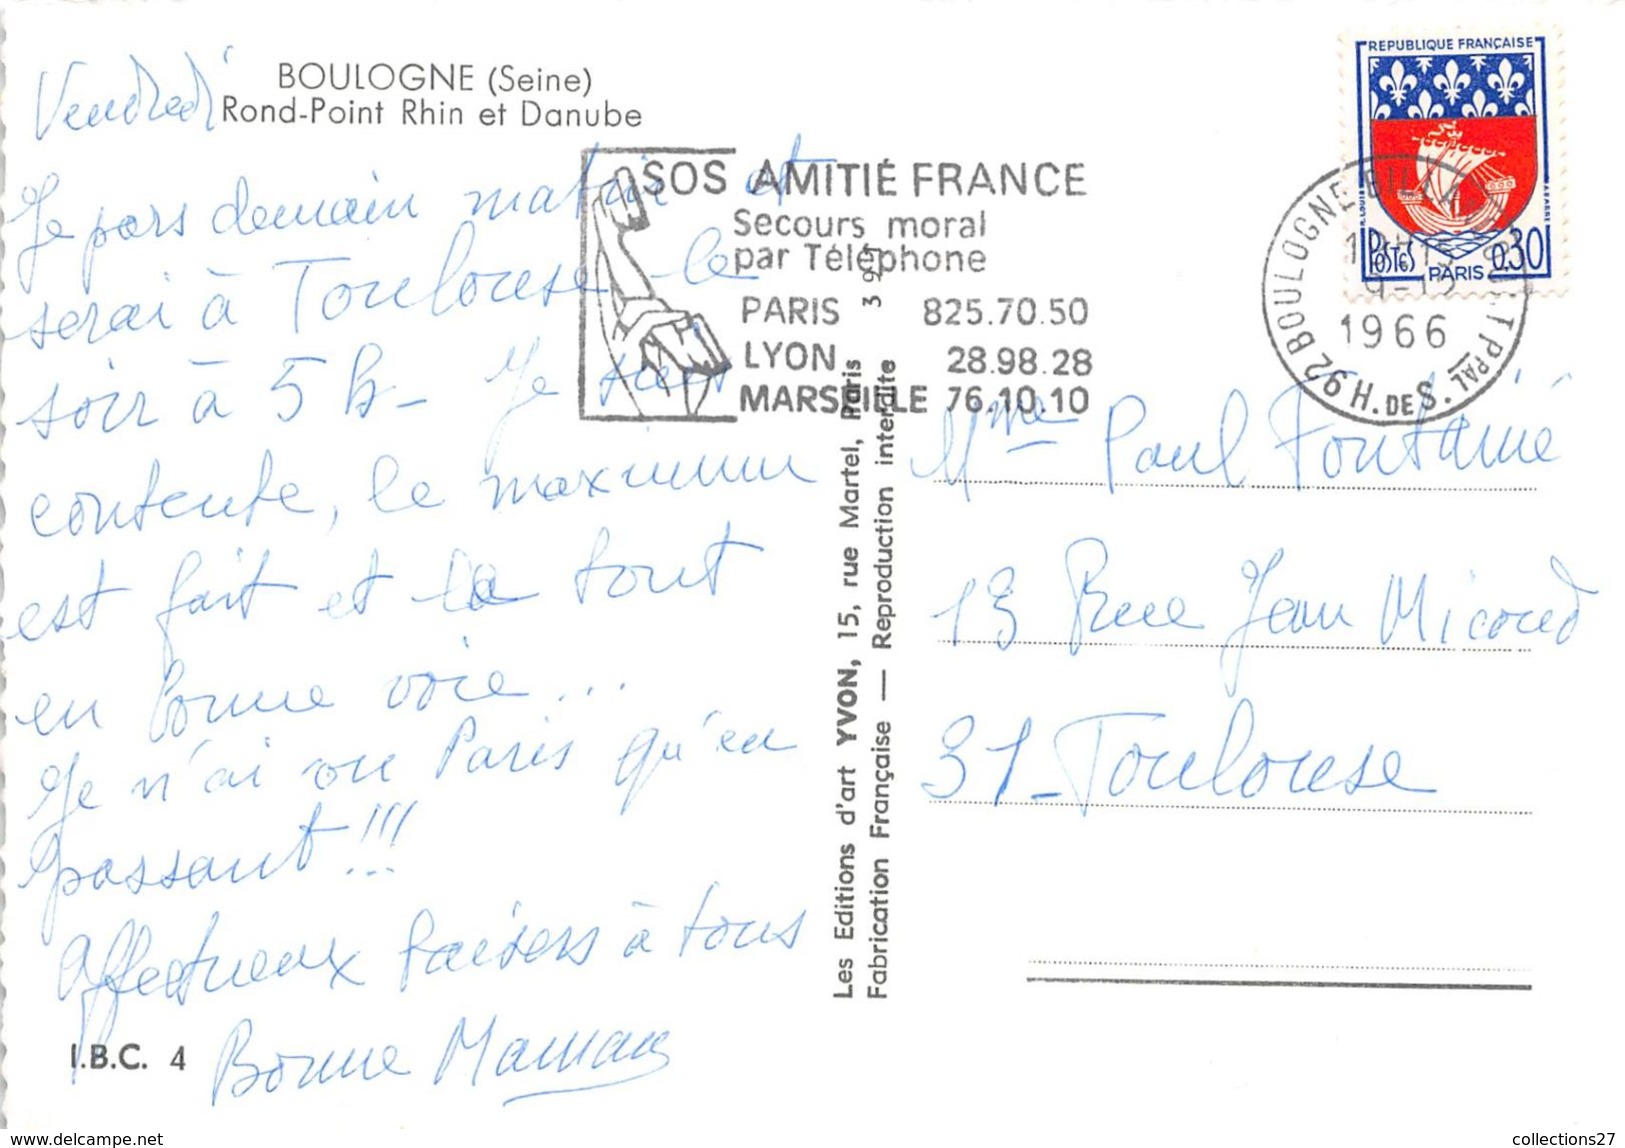 Vendredi
BOULOGNE (Seine)
Rond-Point Rhin et Danube
Je pars demain matin et
serai à Toulouse le
soir à 5 h - Je suis
contente, le maximum
est fait et le tout
en bonne voie...
Je n'ai vu Paris qu'en
passant !!!
Affectueux baisers à tous
Bonne Maman
I.B.C. 4
SOS AMITIÉ FRANCE
Secours moral
par Téléphone
PARIS 825.70.50
LYON 28.98.28
MARSEILLE 76.10.10
Les Editions d'art YVON, 15, rue Martel, Paris
Fabrication Française — Reproduction interdite
REPUBLIQUE FRANÇAISE
POSTES 0,30
PARIS
92 BOULOGNE BILLANCOURT PPAL
1966
H. DE S.
Mme Paul Fontanié
13 Rue Jean Micoud
31 - Toulouse
collections27